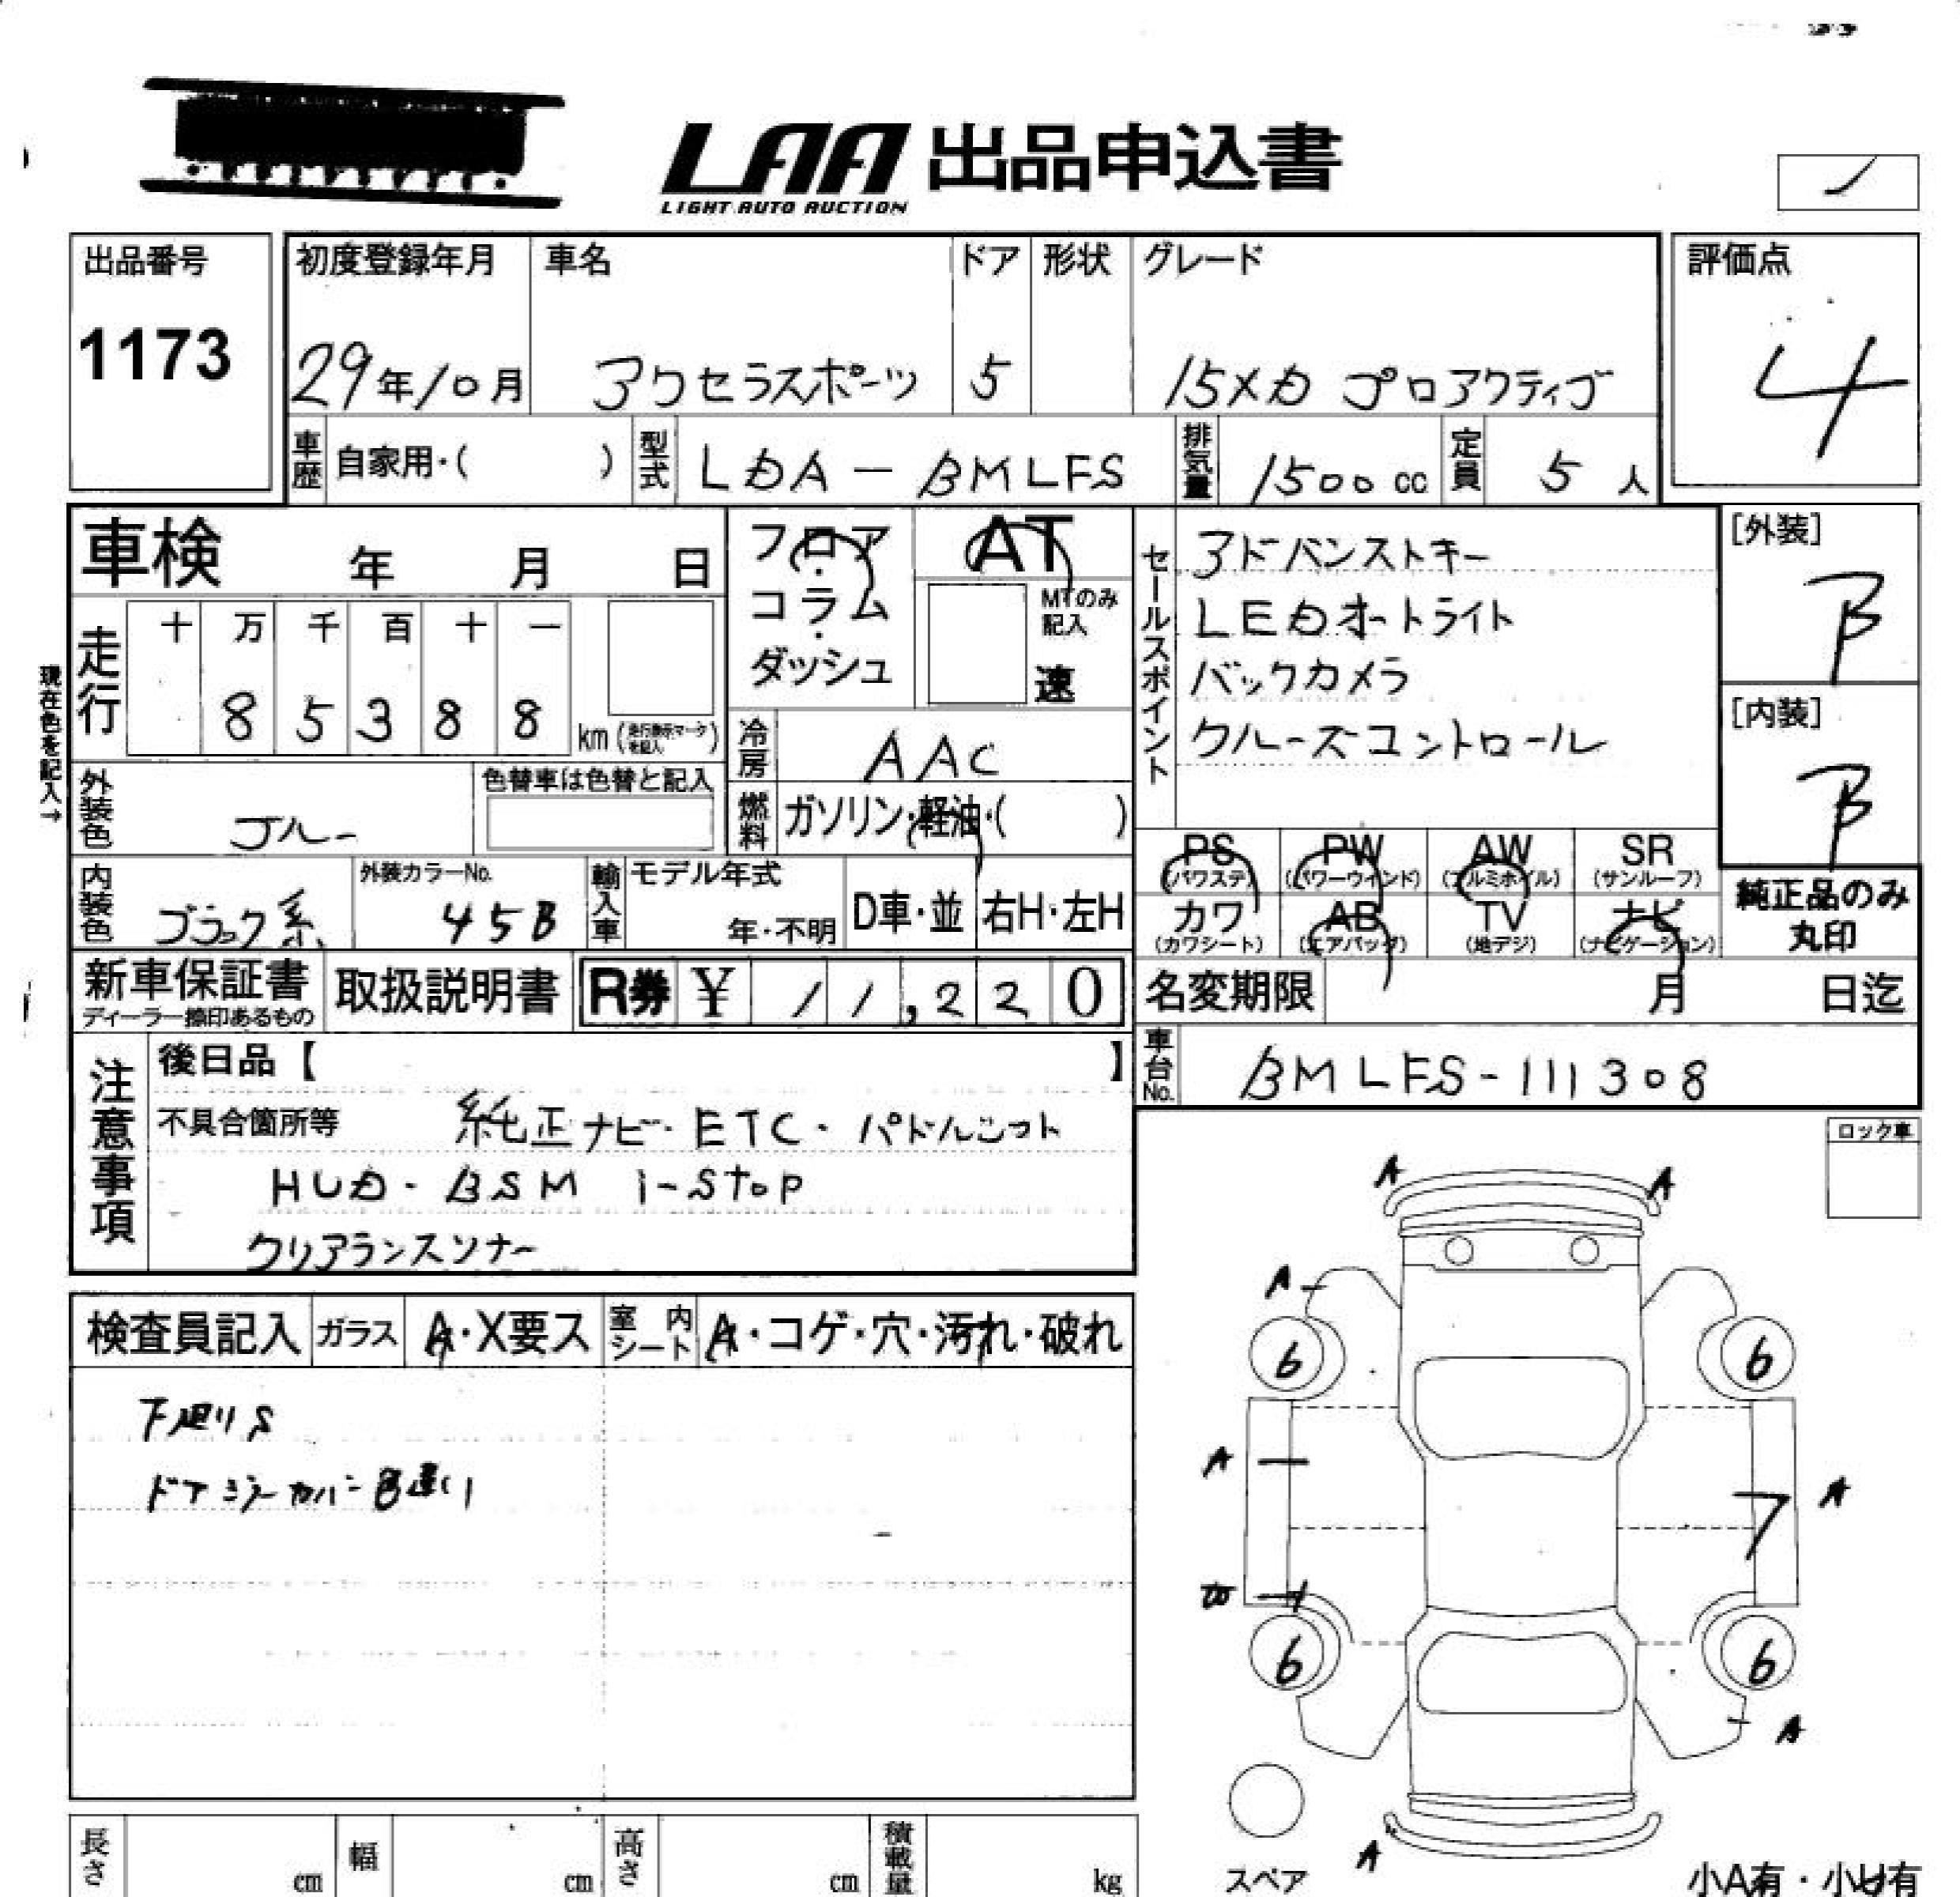 LAA 出品申込書
LIGHT AUTO AUCTION
出品番号
1173
初度登録年月
29年10月
車名
アクセラスポーツ
ドア
5
形状
グレード
15XD プロアクティブ
評価点
4
車歴 自家用・( )
型式 LDA-BMLFS
排気量 1500 cc
定員 5 人
車検 年 月 日
走行
十 万 千 百 十 一
8 5 3 8 8 km (走行表示マークを記入)
現在色を記入→
フロア・コラム・ダッシュ
AT
MTのみ記入
速
冷房 AAC
燃料 ガソリン・軽油・( )
外装色 ブルー
色替車は色替と記入
内装色 ブラック系
外装カラーNo.
45B
輸入車
モデル年式
年・不明
D車・並
右H・左H
セールスポイント
アドバンストキー
LEDオートライト
バックカメラ
クルーズコントロール
[外装]
B
[内装]
B
PS (パワステ)
PW (パワーウインド)
AW (アルミホイル)
SR (サンルーフ)
カワ (カワシート)
AB (エアバッグ)
TV (地デジ)
ナビ (ナビゲーション)
純正品のみ
丸印
新車保証書
ディーラー捺印あるもの
取扱説明書
R券 ¥ 11,220
名変期限 月 日迄
車台No. BMLFS-111308
注意事項
後日品【 】
不具合箇所等 純正ナビ・ETC・パドルシフト
HUD・BSM i-stop
クリアランスソナー
ロック車
検査員記入
ガラス A・X要ス
室内シート A・コゲ・穴・汚れ・破れ
下廻りS
A A
A
6 6
A
A
6 6
A
A
スペア
小A有・小U有
長さ cm
幅 cm
高さ cm
積載量 kg